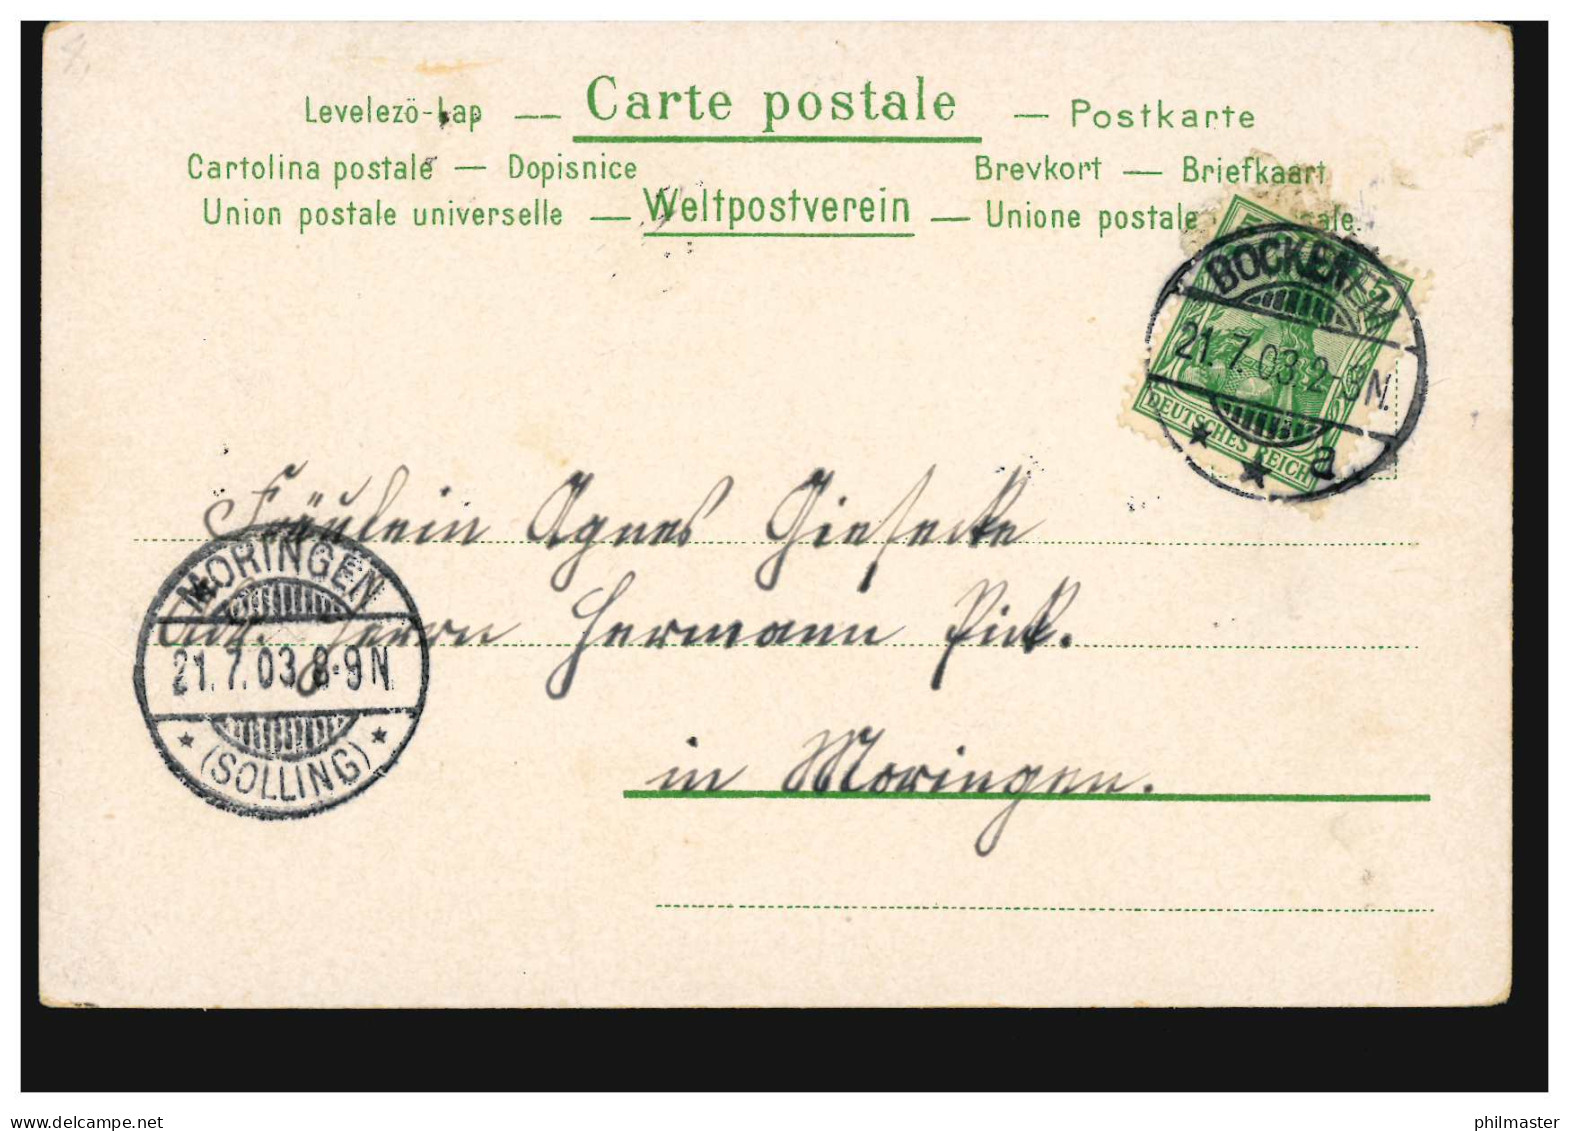 Levelezö-Lap — Carte postale — Postkarte
Cartolina postale — Dopisnice
Brevkort — Briefkaart
Union postale universelle — Weltpostverein — Unione postale ale.
5 5
BOCKENEM
21.7.03.2-3N.
DEUTSCHES REICH
* * a
Fräulein Agnes Giesecke
Adr. Herrn Hermann Pick.
in Moringen.
MORINGEN
21.7.03.8-9N.
* (SOLLING) *
delcampe.net
philmaster